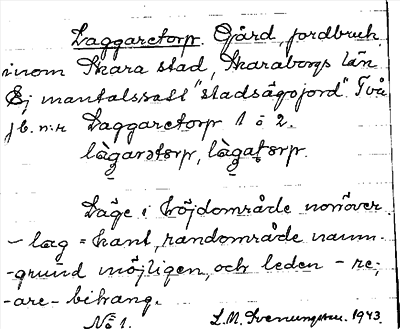 Laggaretorp. Gård, jordbruk
inom Skara stad, Skaraborgs län
Ej mantalssatt "stadsägojord". Två
jb. n:r Laggaretorp 1 o 2.
làgarətɔrp, làgaṭɔrp.
Läge i höjdområde norröver
- lag = kant, randområde
-grund möjligen, och leden - re,
-are - bihang.
No 1. 1943.